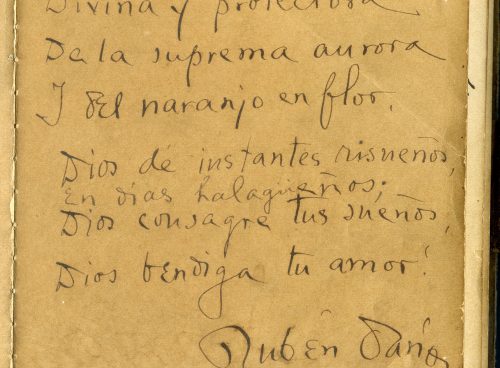 Divina y protectora
De la suprema aurora
Y del naranjo en flor.
Dios dé instantes risueños,
En días halagüeños;
Dios consagre tus sueños,
Dios bendiga tu amor!
Rubén Darío